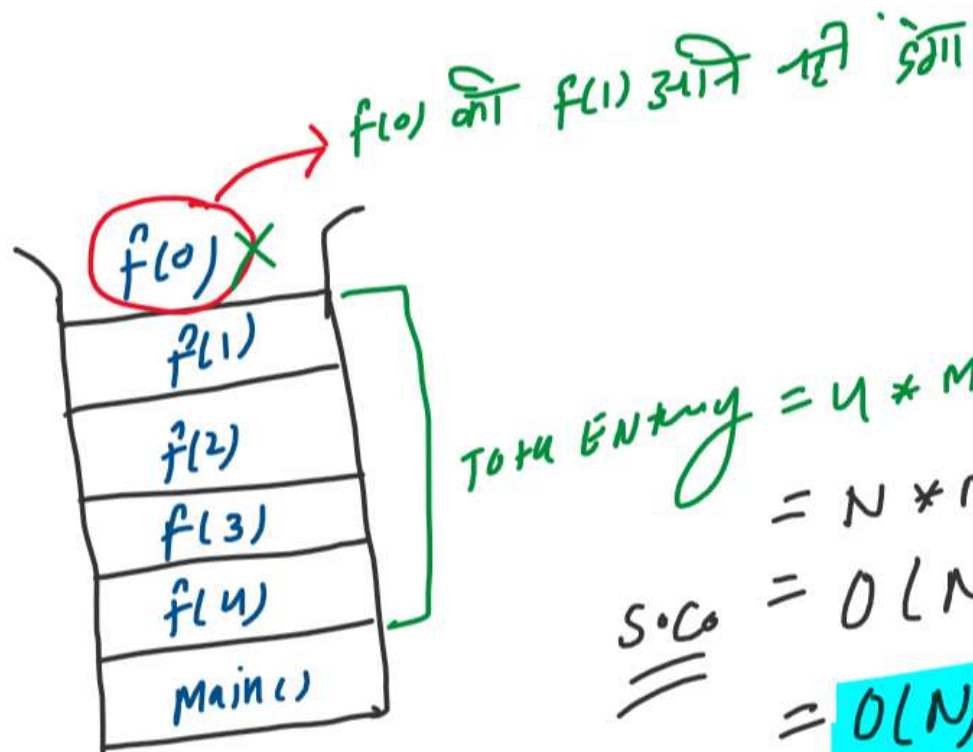 f(0) को f(1) आने नही देगा
f(0) X
f(1)
f(2)
f(3)
f(4)
Main()
Total ENtry = 4 * M
= N *
S.C. = O(N
= O(N)